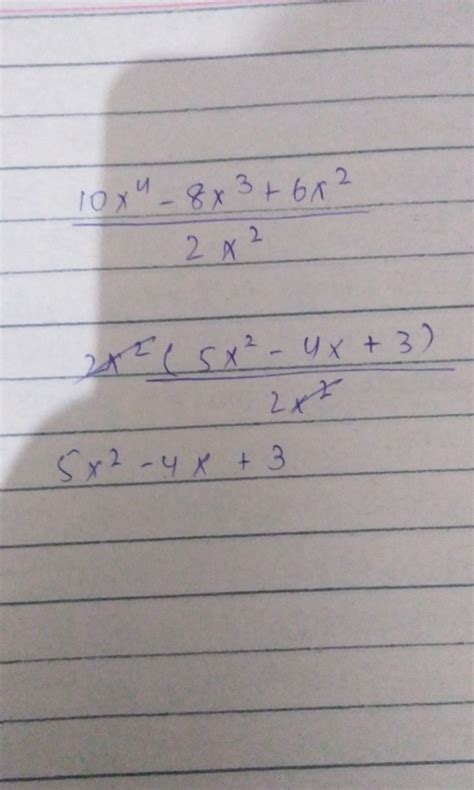 10x⁴ - 8x³ + 6x²
2x²
2x² (5x² - 4x + 3)
2x²
5x² - 4x + 3